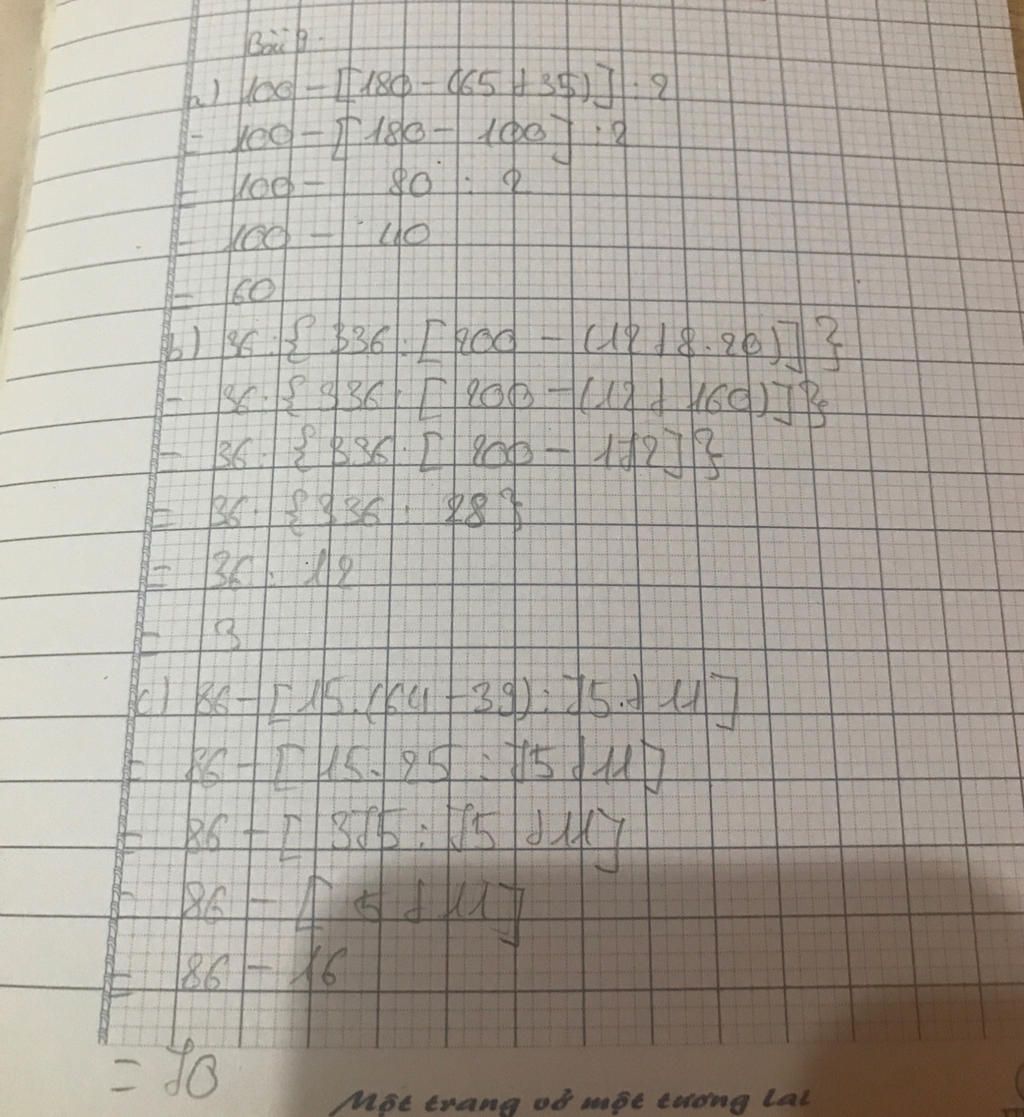 Bài 9.
a) 100 - [180 - (65 + 35)] : 2
= 100 - [180 - 100] : 2
= 100 - 80 : 2
= 100 - 40
= 60
b) 36 : { 336 : [200 - (12 + 8 . 20)] }
= 36 : { 336 : [ 200 - (12 + 160)] }
= 36 : { 336 : [ 200 - 172] }
= 36 : { 336 : 28 }
= 36 : 12
= 3
c) 86 - [15 . (64 - 39) : 75 + 11]
= 86 - [ 15 . 25 : 75 + 11]
= 86 - [ 375 : 75 + 11]
= 86 - [ 5 + 11]
= 86 - 16
= 70
Một trang vở một tương lai